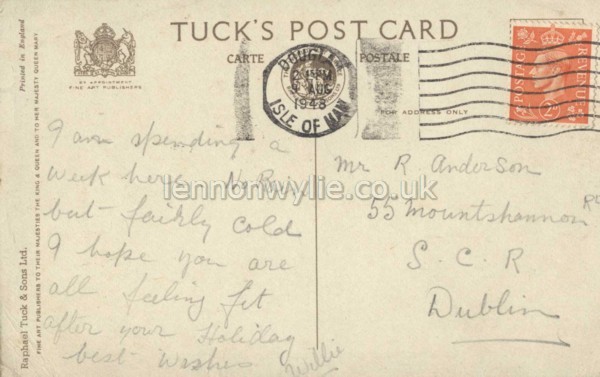 TUCK'S POST CARD
CARTE
POSTALE
BY APPOINTMENT
FINE ART PUBLISHERS
FOR ADDRESS ONLY
DOUGLAS
2 15 PM
9 AUG
1948
ISLE OF MAN
POSTAGE
REVENUE
2D
Printed in England
Raphael Tuck & Sons Ltd.
FINE ART PUBLISHERS TO THEIR MAJESTIES THE KING & QUEEN AND TO HER MAJESTY QUEEN MARY
I am spending a
week here No Rain
but fairly cold
I hope you are
all feeling fit
after your Holiday
best wishes
Willie
Mr R Anderson
55 Mountshannon Rd
S. C. R
Dublin
lennonwylie.co.uk